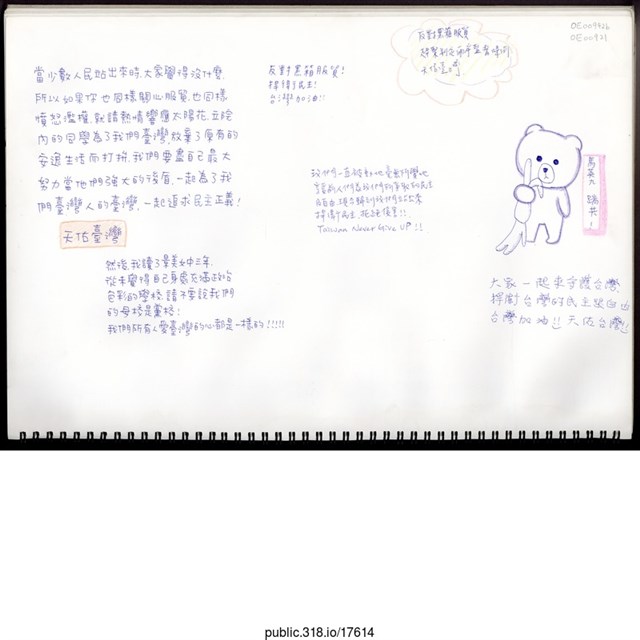 OE009926
OE00921
當少數人民站出來時,大家覺得沒什麼,
所以如果你也同樣關心服貿,也同樣
憤怒濫權,就請熱情響應太陽花,立院
內的同學為了我們臺灣放棄了原有的
安逸生活而打拚,我們要盡自己最大
努力當他們強大的後盾,一起為了我
們臺灣人的臺灣,一起追求民主正義!
天佑臺灣
然後,我讀了景美女中三年,
從未覺得自己身處充滿政治
色彩的學校,請不要說我們
的母校是黨校!
我們所有人愛臺灣的心都是一樣的!!!!!
反對黑箱服貿!
捍衛民主!
台灣加油!!
反對黑箱服貿
天佑臺灣
我們一直被動地
享受前人們為我們所爭取的民主
自由,現在輪到我們站出來
捍衛民主,拒絕傀儡!!
Taiwan Never Give UP!!
馬英九 踹共!
大家一起來守護台灣
捍衛台灣的民主與自由
台灣加油!! 天佑台灣!!
public.318.io/17614